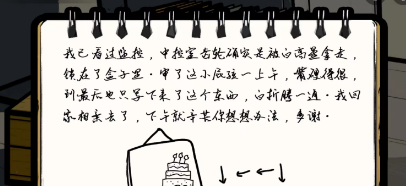 我已看过监控，中控室齿轮确实是被白高盖拿走，
锁在了盒子里。审了这小屁孩一上午，嘴硬得很，
到最后也只写下来了这个东西，白折腾一通。我回
家相亲去了，下午就辛苦你想想办法，多谢。
↓←←↓